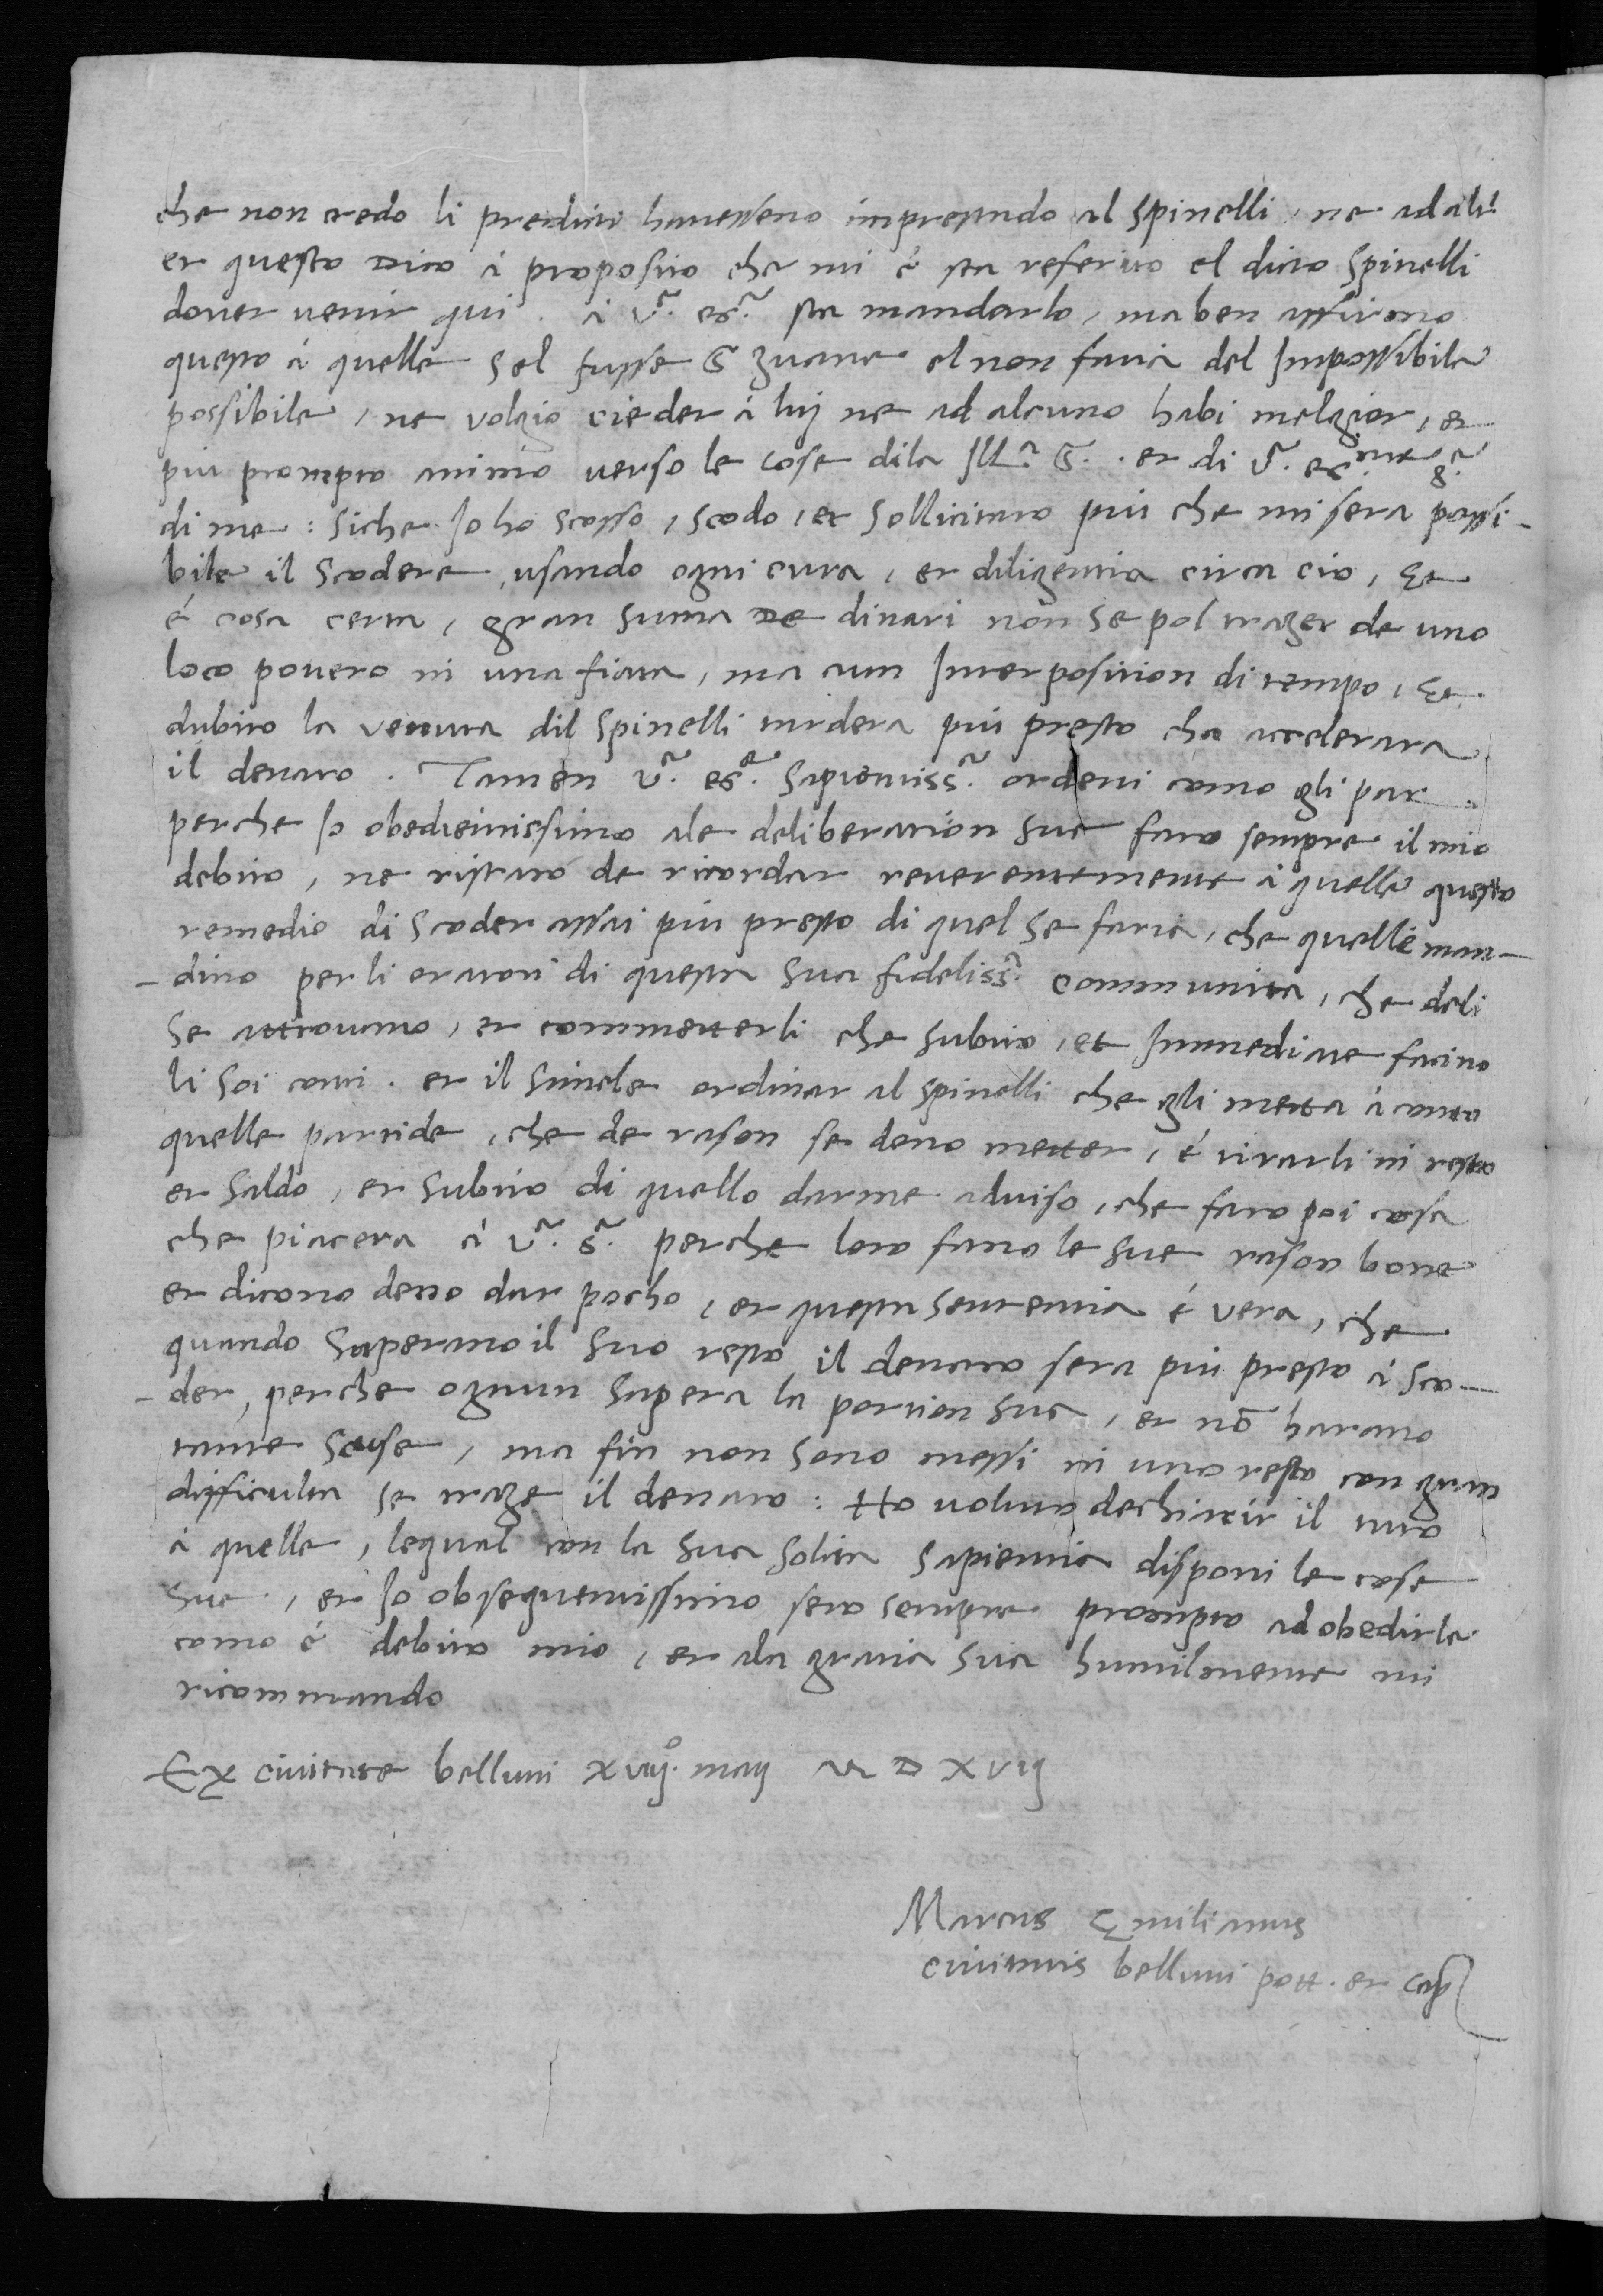 che non credo li predicti havesseno imprestado al Spinelli, ne ad altri
et questo dico à proposito che mi è sta referito el dicto Spinelli
dover venir qui. à v.ª ex.ª sta mandarlo, ma ben affirmo
questo à quelle sel fusse S. zuane el non faria del Impossibile
possibile, ne volgio cieder à luj ne ad alcuno habi melgior, et
piu prompto animo verso le cose dila Ill.ª S. et di v.ª
di me: siche Io ho scosso, scodo, et sollicitato piu che mi sera possi-
bile il scodere, usando ogni cura, et diligentia circa cio, et
è cosa certa, gran suma de dinari non se pol trazer de uno
loco povero in una fiata, ma cum Interposition di tempo, et
dubito la venuta dil Spinelli tardera più presto cha accelerara
il denaro. Tamen v.ª ex.ª sapientiss.ª ordeni como gli par
perche Io obedientissimo ale deliberation sue faro sempre il mio
debito, ne restaro de ricordar reverentemente à quelle questo
remedio di scoder assai più presto di quel se faria, che quelle man-
-dino per li oratori di questa sua fideliss.ª Communita, che deli
se attrovano, et commetterli che subito, et Immediate facino
li soi conti. et il simele ordinar al Spinelli che gli metta à conto
quelle partide, che de rason se deno metter, è tirarli in resto
et saldo, et subito di quello darme adviso, che faro poi cosa
che piacera à v.ª S.ª perche loro fano le sue rason bone
et dicono deno dar pocho, et questa sententia è vera, che
quando saperano il suo resto il denaro sera più presto à sco-
-der, perche ognun sapera la portion sua, et nō harano
tante scuse, ma fin non sono messi in uno resto con gran
difficulta se traze il denaro: Ho voluto dechiarir il tuto
à quelle, lequal con la sua solita sapientia disponi le cose
sue, et Io obsequentissimo sero sempre prompto ad obedirle
como è debito mio, et ala gratia sua humilmente mi
ricommando
Ex civitate belluni xviij.º maij M D xvij
Marcus Emilianus
Civitatis belluni pott. et cap